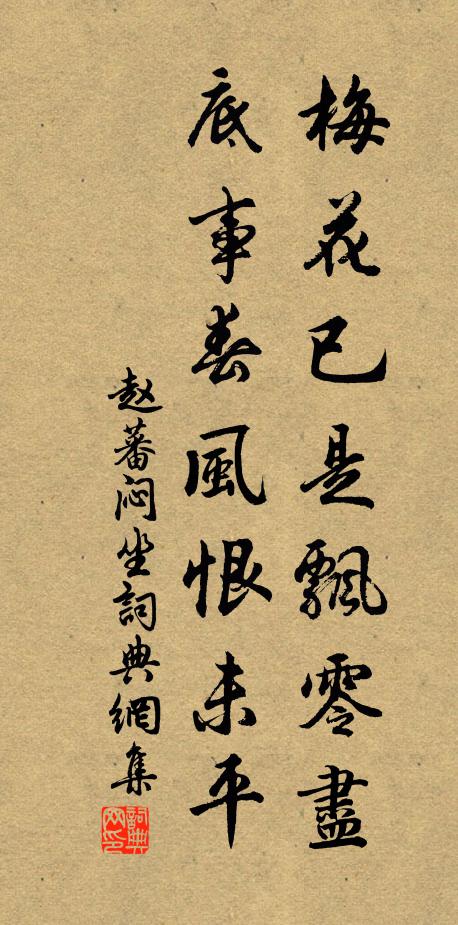 梅花已是飄零盡
底事春風恨未平
赵蕃闷坐詞典網集
詞典网印